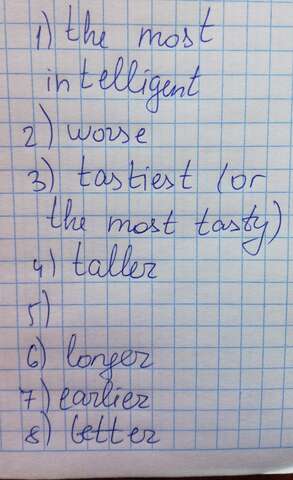 1) the most
intelligent
2) worse
3) tastiest (or
the most tasty)
4) taller
5)
6) longer
7) earlier
8) better